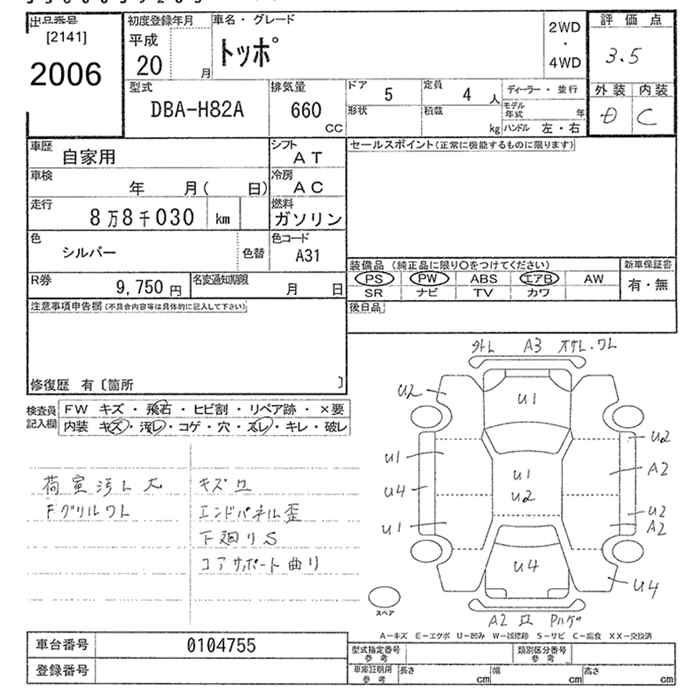 出品番号
[2141]
2006
初度登録年月
平成
20
月
車名・グレード
トッポ
2WD
・
4WD
評価点
3.5
型式
DBA-H82A
排気量
660
CC
ドア
5
定員
4 人
形状
積載
kg
ディーラー・並行
モデル年式
年
ハンドル 左・右
外装
内装
D
C
車歴
自家用
シフト
AT
車検
年 月( 日)
冷房
AC
走行
8万8千030 km
燃料
ガソリン
色
シルバー
色替
色コード
A31
R券
9,750 円
名変通知期限
月 日
セールスポイント(正常に機能するものに限ります)
装備品 (純正品に限り〇をつけてください)
新車保証書
PS PW ABS エアB AW
有・無
SR ナビ TV カワ
後日品
注意事項申告欄(不具合内容等は具体的に記入して下さい)
修復歴 有〔箇所 〕
検査員記入欄
FW キズ・飛石・ヒビ割・リペア跡・×要
内装 キズ・汚レ・コゲ・穴・スレ・キレ・破レ
荷室汚レ大
Fグリルワレ
キズ凹
エンドパネル歪
下廻りS
コアサポート曲り
外レ A3 スサレ・ワレ
U2
U1
U1
U4
U1
U1
U2
U2
A2
U2
A2
U4
U4
A2 凹 Pハゲ
スペア
A-キズ E-エクボ U-凹み W-波修跡 S-サビ C-腐食 XX-交換済
車台番号
0104755
登録番号
型式指定番号
参考
類別区分番号
参考
車庫証明用
参考
長さ
cm
幅
cm
高さ
cm